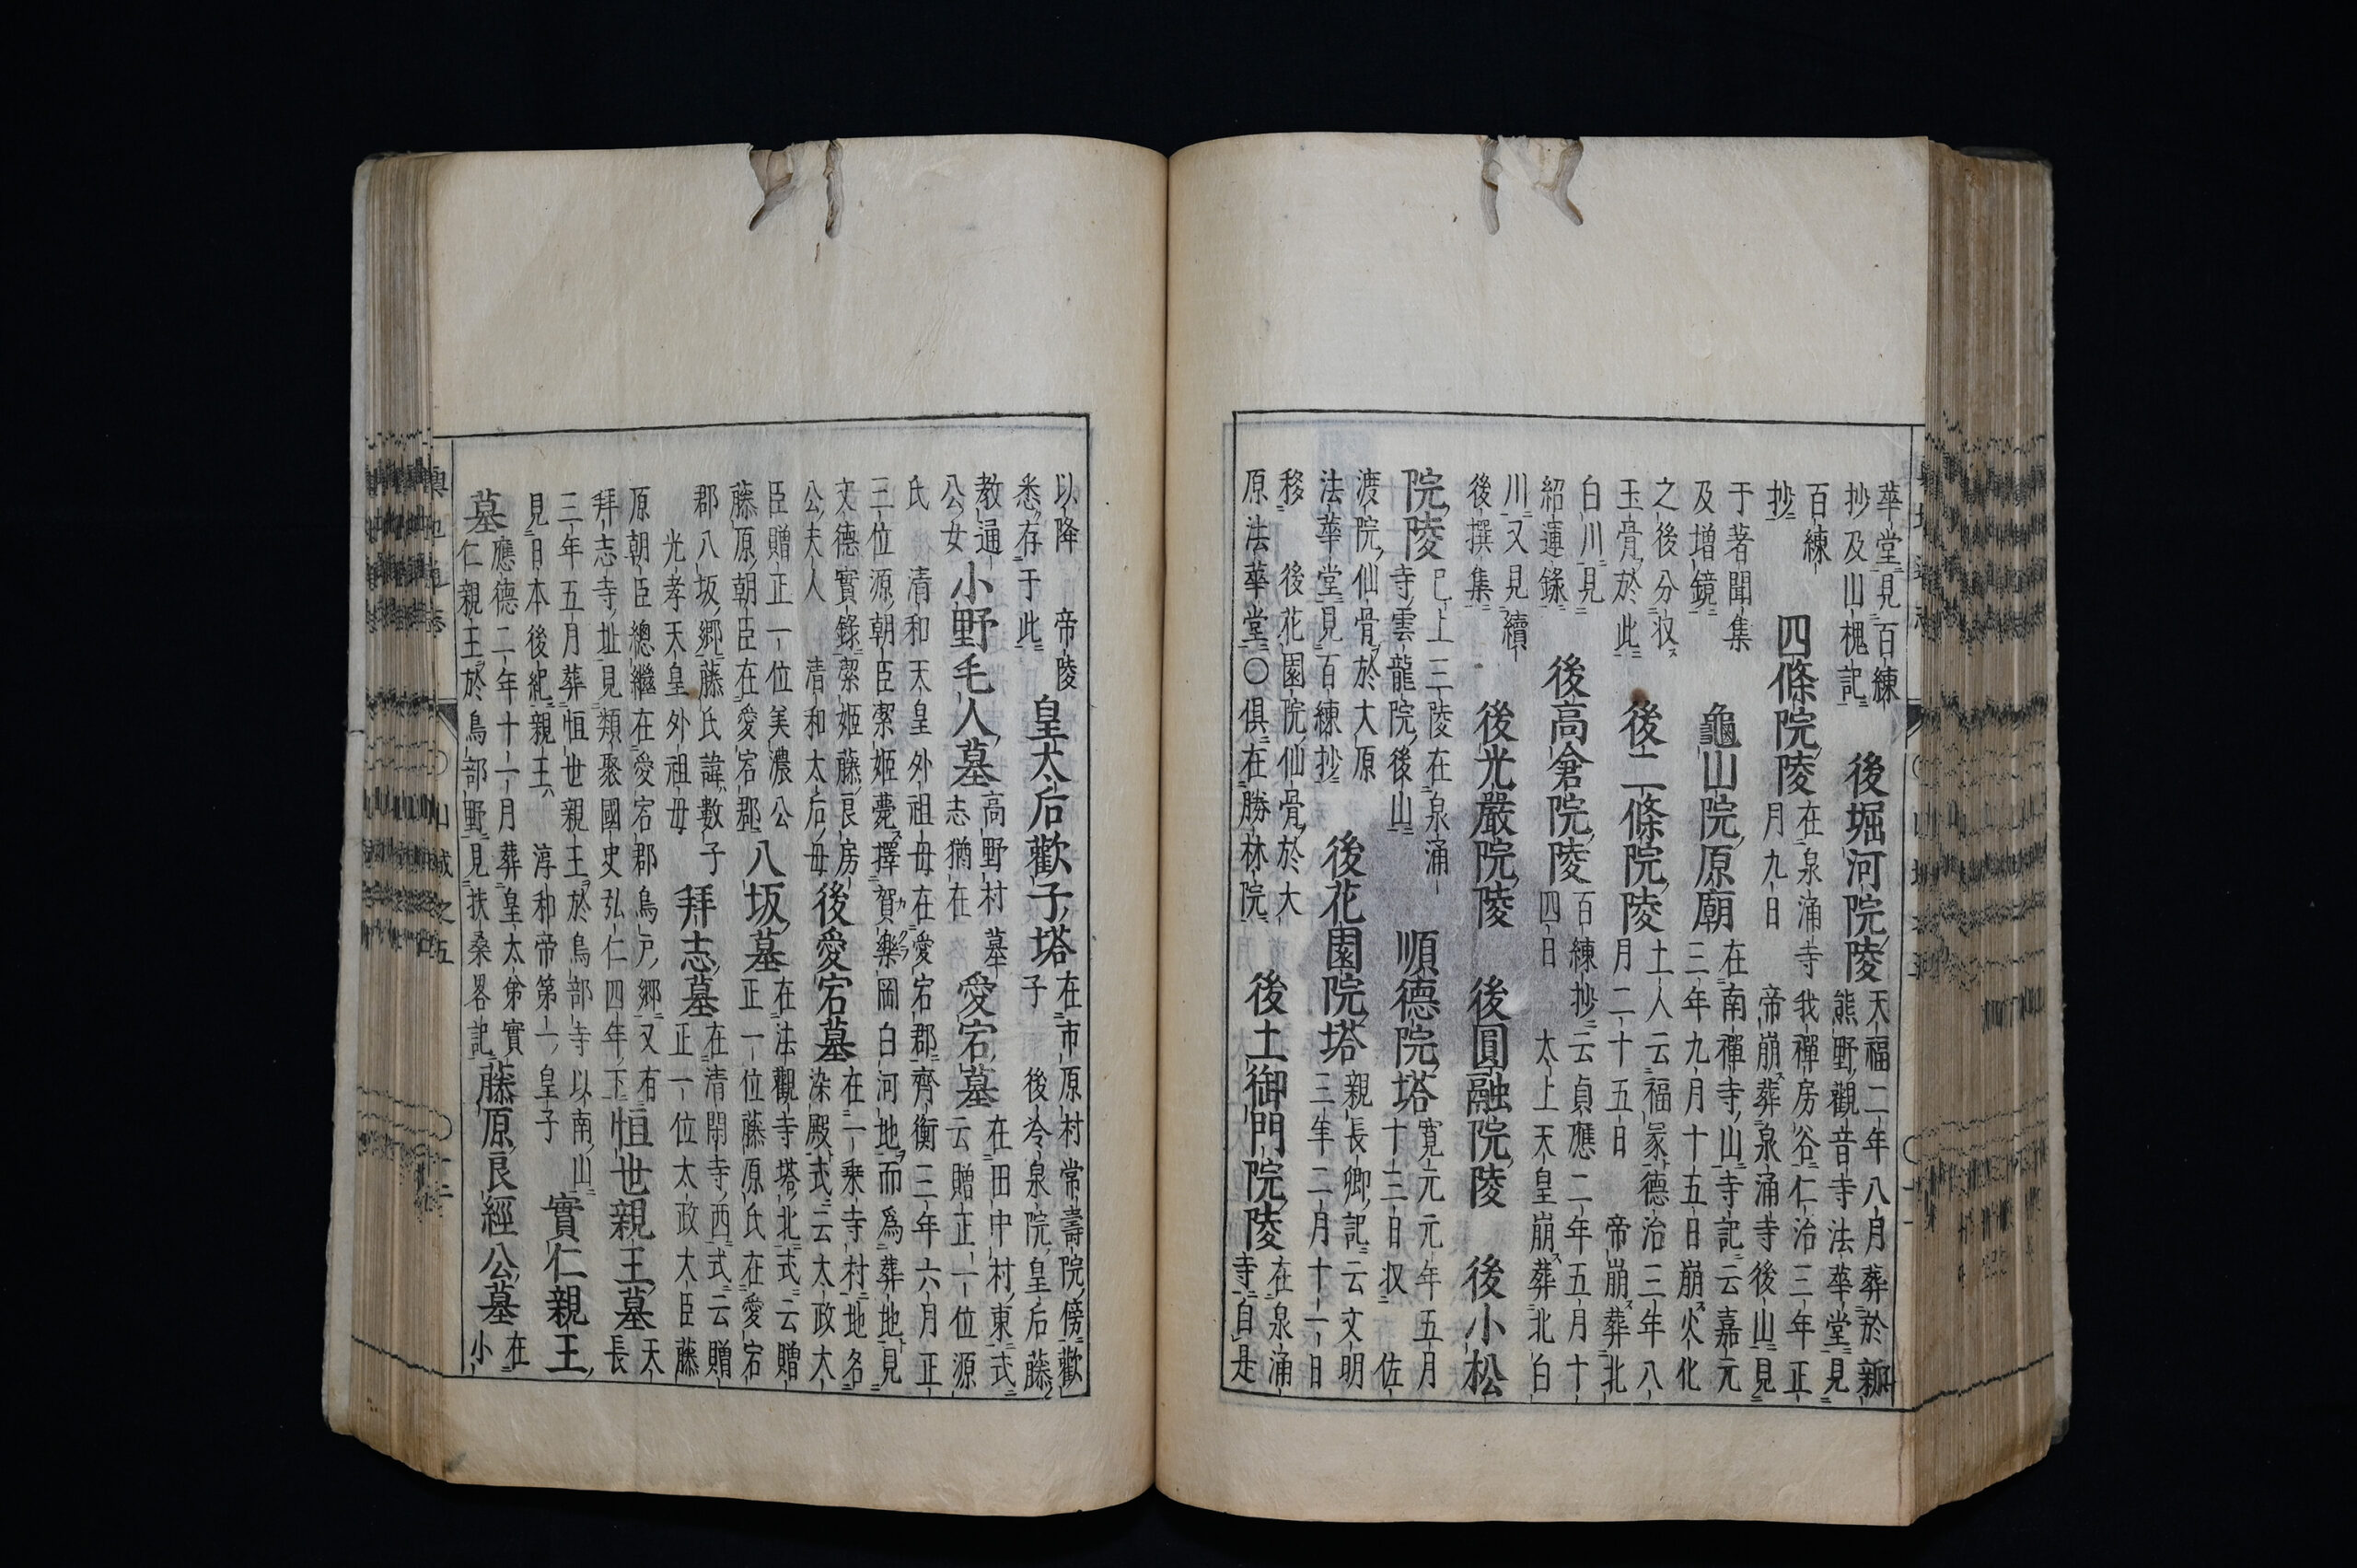 華堂見百練
抄及山槐記
後堀河院陵
天福二年八月葬於新
熊野觀音寺法華堂見
百練
抄
四條院陵
在泉涌寺我禪房谷仁治三年正
月九日帝崩葬泉涌寺後山見
于著聞集
及增鏡
龜山院原廟
在南禪寺山寺記云嘉元
三年九月十五日崩火化
之後分收
玉骨於此
後二條院陵
土人云福家德治三年八
月二十五日帝崩葬北
白川見
紹運錄
後高倉院陵
百練抄云貞應二年五月十
四日太上天皇崩葬北白
川又見續
後撰集
後光嚴院陵 後圓融院陵 後小松
院陵
已上三陵在泉涌
寺雲龍院後山
順德院塔
寬元元年五月
十三日收佐
渡院仙骨於大原
法華堂見百練抄
後花園院塔
親長卿記云文明
三年二月十一日
移後花園院仙骨於大
原法華堂○俱在勝林院
後土御門院陵
在泉涌
寺自是
以降帝陵
悉存于此
皇太后歡子塔
在市原村常壽院傍歡
子後冷泉院皇后藤
教通
公女
小野毛人墓
高野村墓
志猶在
愛宕墓
在田中村東式
云贈正一位源
氏清和天皇外祖母在愛宕郡齊衡三年六月正
三位源朝臣潔姬薨擇賀樂岡白河地而爲葬地見
文德實錄潔姬藤良房
公夫人清和太后母
後愛宕墓
在一乘寺村地名
染殿式云太政大
臣贈正一位美濃公
藤原朝臣在愛宕郡
八坂墓
在法觀寺塔北式云贈
正一位藤原氏在愛宕
郡八坂郷藤氏諱數子
光孝天皇外祖母
拜志墓
在清閑寺西式云贈
正一位太政大臣藤
原朝臣總繼在愛宕郡鳥戶郷又有
拜志寺址見類聚國史弘仁四年下
恒世親王墓
天
長
三年五月葬恒世親王於鳥部寺以南山
見日本後紀親王淳和帝第一皇子
實仁親王
墓
應德二年十一月葬皇太弟實
仁親王於鳥部野見扶桑畧記
藤原良經公墓
在
小
輿地通志 ○山城之五 十二